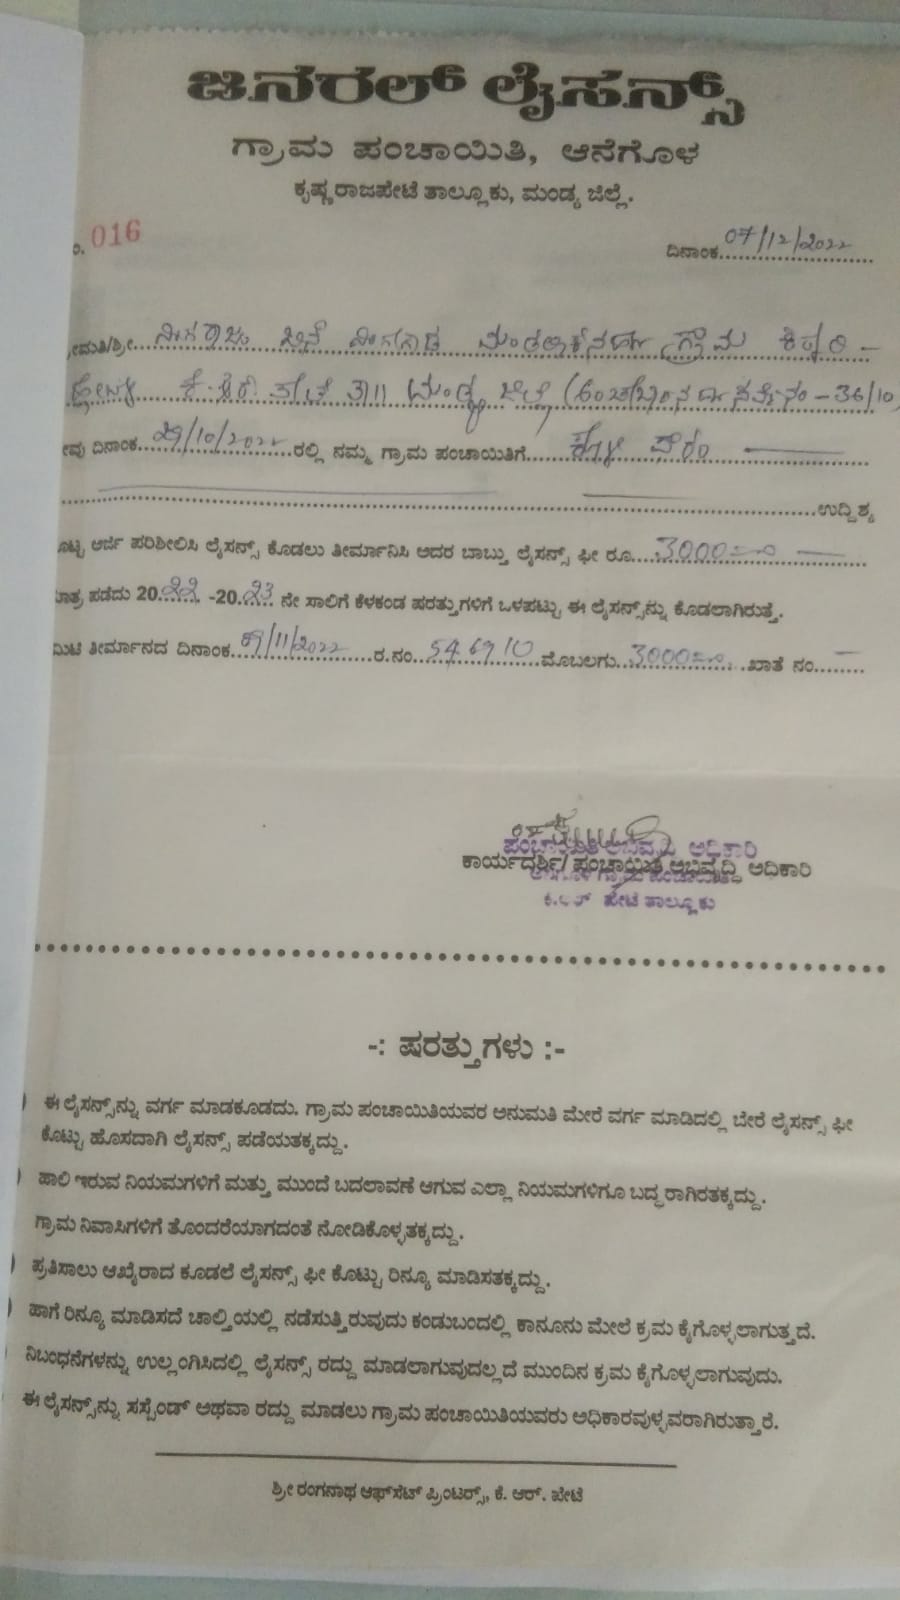 ಜನರಲ್ ಲೈಸನ್ಸ್
ಗ್ರಾಮ ಪಂಚಾಯಿತಿ, ಆನೆಗೊಳ
ಕೃಷ್ಣರಾಜಪೇಟೆ ತಾಲ್ಲೂಕು, ಮಂಡ್ಯ ಜಿಲ್ಲೆ.
ಂ. 016 ದಿನಾಂಕ 07/12/2022
ೀಮತಿ/ಶ್ರೀ ಗ್ರಾಮ
ಮಂಡ್ಯ ಜಿಲ್ಲೆ - 36/10
ೀವು ದಿನಾಂಕ 29/10/2022 ರಲ್ಲಿ ನಮ್ಮ ಗ್ರಾಮ ಪಂಚಾಯಿತಿಗೆ ಕೋಳಿ ಫಾರಂ
ಉದ್ದಿಶ್ಯ
ೊಟ್ಟ ಅರ್ಜಿ ಪರಿಶೀಲಿಸಿ ಲೈಸನ್ಸ್ ಕೊಡಲು ತೀರ್ಮಾನಿಸಿ ಅದರ ಬಾಬ್ತು ಲೈಸನ್ಸ್ ಫೀ ರೂ. 3000=00
ಮಾತ್ರ ಪಡೆದು 2022 -2023 ನೇ ಸಾಲಿಗೆ ಕೆಳಕಂಡ ಷರತ್ತುಗಳಿಗೆ ಒಳಪಟ್ಟು ಈ ಲೈಸನ್ಸ್‌ನ್ನು ಕೊಡಲಾಗಿರುತ್ತೆ.
ಮಿಟಿ ತೀರ್ಮಾನದ ದಿನಾಂಕ 09/11/2022 ರ.ನಂ. 5469/10 ಮೊಬಲಗು 3000=00 ಖಾತೆ ನಂ. -
ಪಂಚಾಯಿತಿ ಅಭಿವೃದ್ಧಿ ಅಧಿಕಾರಿ
ಕಾರ್ಯದರ್ಶಿ/ ಪಂಚಾಯಿತಿ ಅಭಿವೃದ್ಧಿ ಅಧಿಕಾರಿ
ಆನೆಗೊಳ ಗ್ರಾಮ ಪಂಚಾಯಿತಿ
ಕೆ.ಆರ್ ಪೇಟೆ ತಾಲ್ಲೂಕು
-: ಷರತ್ತುಗಳು :-
) ಈ ಲೈಸನ್ಸ್‌ನ್ನು ವರ್ಗ ಮಾಡಕೂಡದು. ಗ್ರಾಮ ಪಂಚಾಯಿತಿಯವರ ಅನುಮತಿ ಮೇರೆ ವರ್ಗ ಮಾಡಿದಲ್ಲಿ ಬೇರೆ ಲೈಸನ್ಸ್ ಫೀ
ಕೊಟ್ಟು ಹೊಸದಾಗಿ ಲೈಸನ್ಸ್ ಪಡೆಯತಕ್ಕದ್ದು.
) ಹಾಲಿ ಇರುವ ನಿಯಮಗಳಿಗೆ ಮತ್ತು ಮುಂದೆ ಬದಲಾವಣೆ ಆಗುವ ಎಲ್ಲಾ ನಿಯಮಗಳಿಗೂ ಬದ್ಧರಾಗಿರತಕ್ಕದ್ದು.
ಗ್ರಾಮ ನಿವಾಸಿಗಳಿಗೆ ತೊಂದರೆಯಾಗದಂತೆ ನೋಡಿಕೊಳ್ಳತಕ್ಕದ್ದು.
) ಪ್ರತಿಸಾಲು ಆಖೈರಾದ ಕೂಡಲೆ ಲೈಸನ್ಸ್ ಫೀ ಕೊಟ್ಟು ರಿನ್ಯೂ ಮಾಡಿಸತಕ್ಕದ್ದು.
) ಹಾಗೆ ರಿನ್ಯೂ ಮಾಡಿಸದೆ ಚಾಲ್ತಿಯಲ್ಲಿ ನಡೆಸುತ್ತಿರುವುದು ಕಂಡುಬಂದಲ್ಲಿ ಕಾನೂನು ಮೇಲೆ ಕ್ರಮ ಕೈಗೊಳ್ಳಲಾಗುತ್ತದೆ.
ನಿಬಂಧನೆಗಳನ್ನು ಉಲ್ಲಂಗಿಸಿದಲ್ಲಿ ಲೈಸನ್ಸ್ ರದ್ದು ಮಾಡಲಾಗುವುದಲ್ಲದೆ ಮುಂದಿನ ಕ್ರಮ ಕೈಗೊಳ್ಳಲಾಗುವುದು.
ಈ ಲೈಸನ್ಸ್‌ನ್ನು ಸಸ್ಪೆಂಡ್ ಅಥವಾ ರದ್ದು ಮಾಡಲು ಗ್ರಾಮ ಪಂಚಾಯಿತಿಯವರು ಅಧಿಕಾರವುಳ್ಳವರಾಗಿರುತ್ತಾರೆ.
ಶ್ರೀ ರಂಗನಾಥ ಆಫ್‌ಸೆಟ್ ಪ್ರಿಂಟರ್ಸ್, ಕೆ. ಆರ್. ಪೇಟೆ